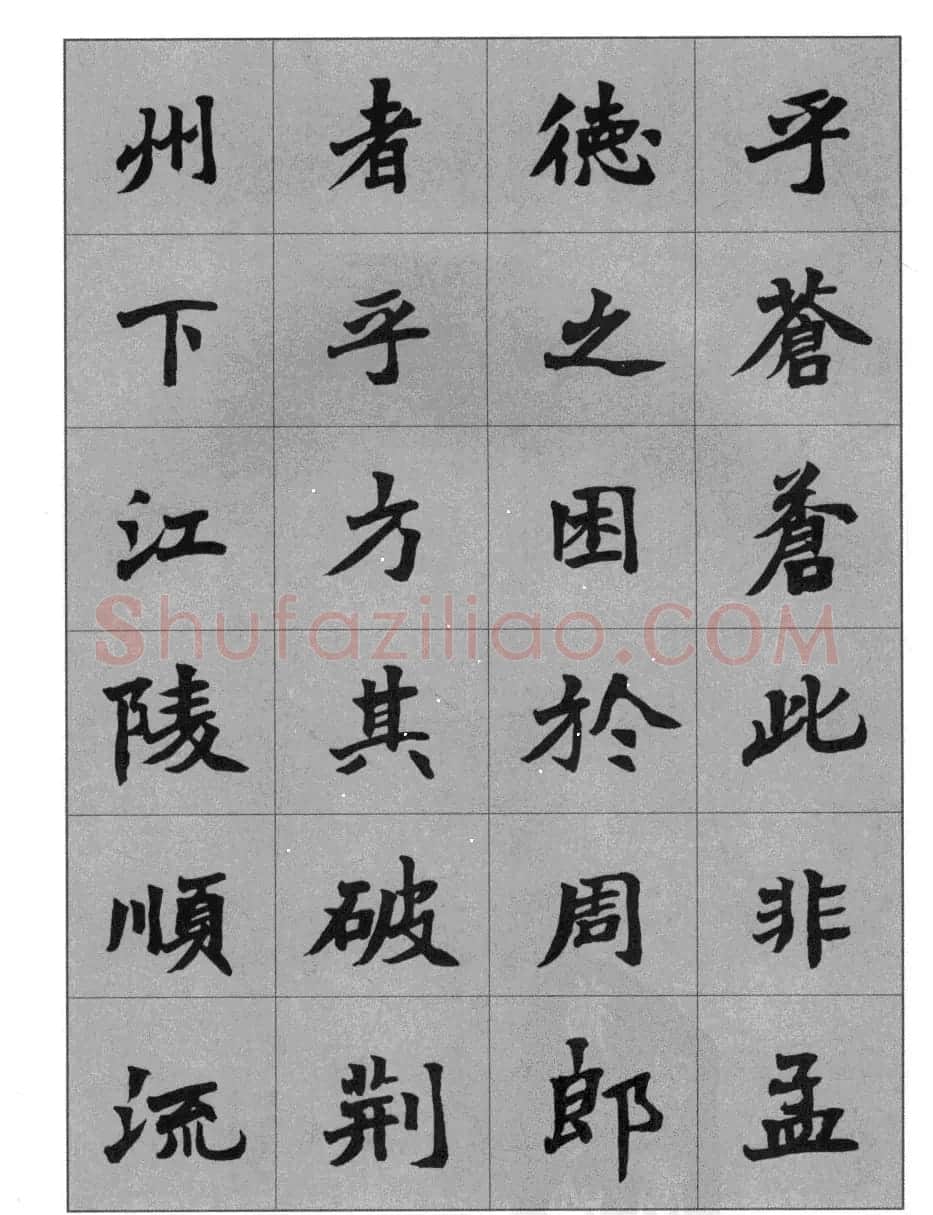 乎蒼蒼此非孟
德之困於周郎
者乎方其破荆
州下江陵順流
Shufaziliao.COM